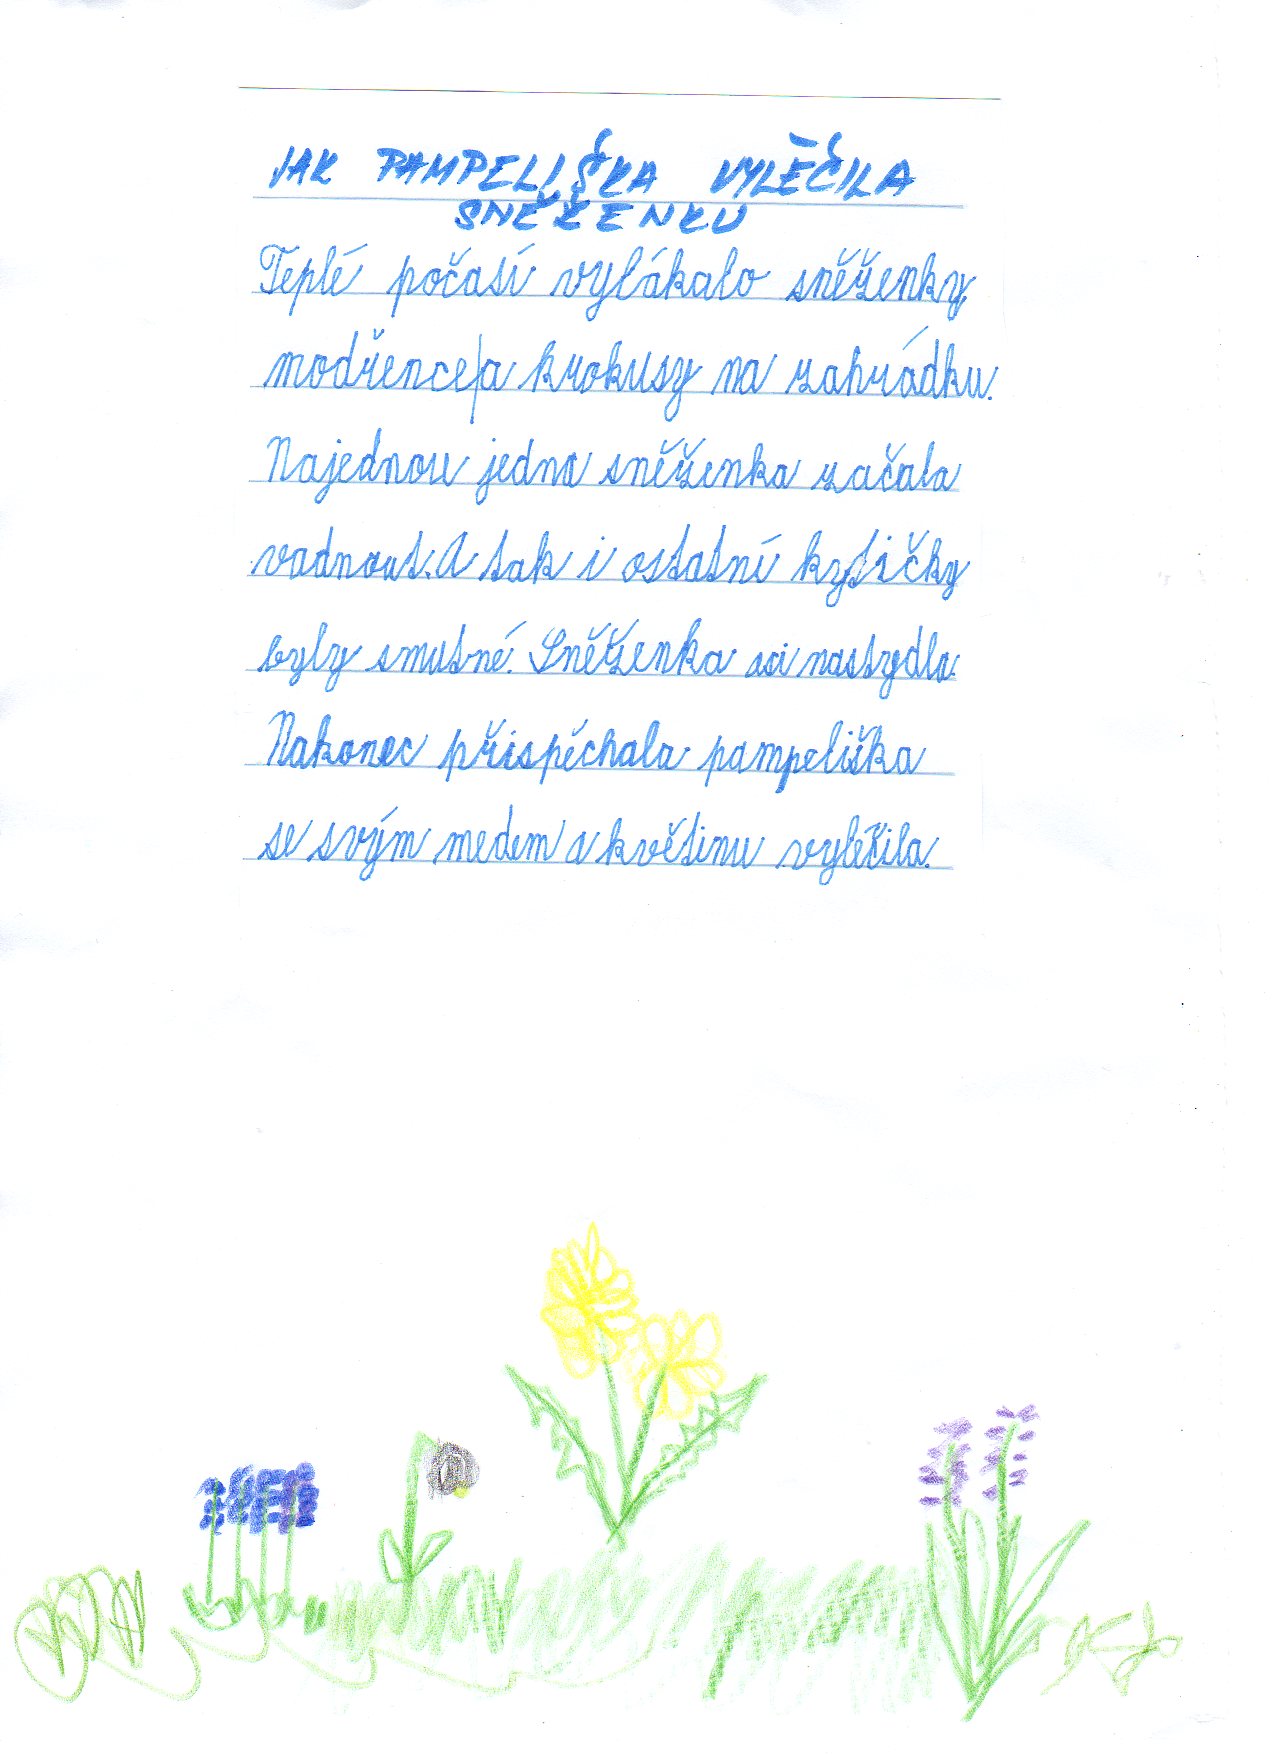 JAK PAMPELIŠKA VYLÉČILA
SNĚŽENKU
Teplé počasí vylákalo sněženky,
modřence a krokusy na zahrádku.
Najednou jedna sněženka začala
vadnout. A tak i ostatní kytičky
byly smutné. Sněženka asi nastydla.
Nakonec přispěchala pampeliška
se svým medem a květinu vyléčila.